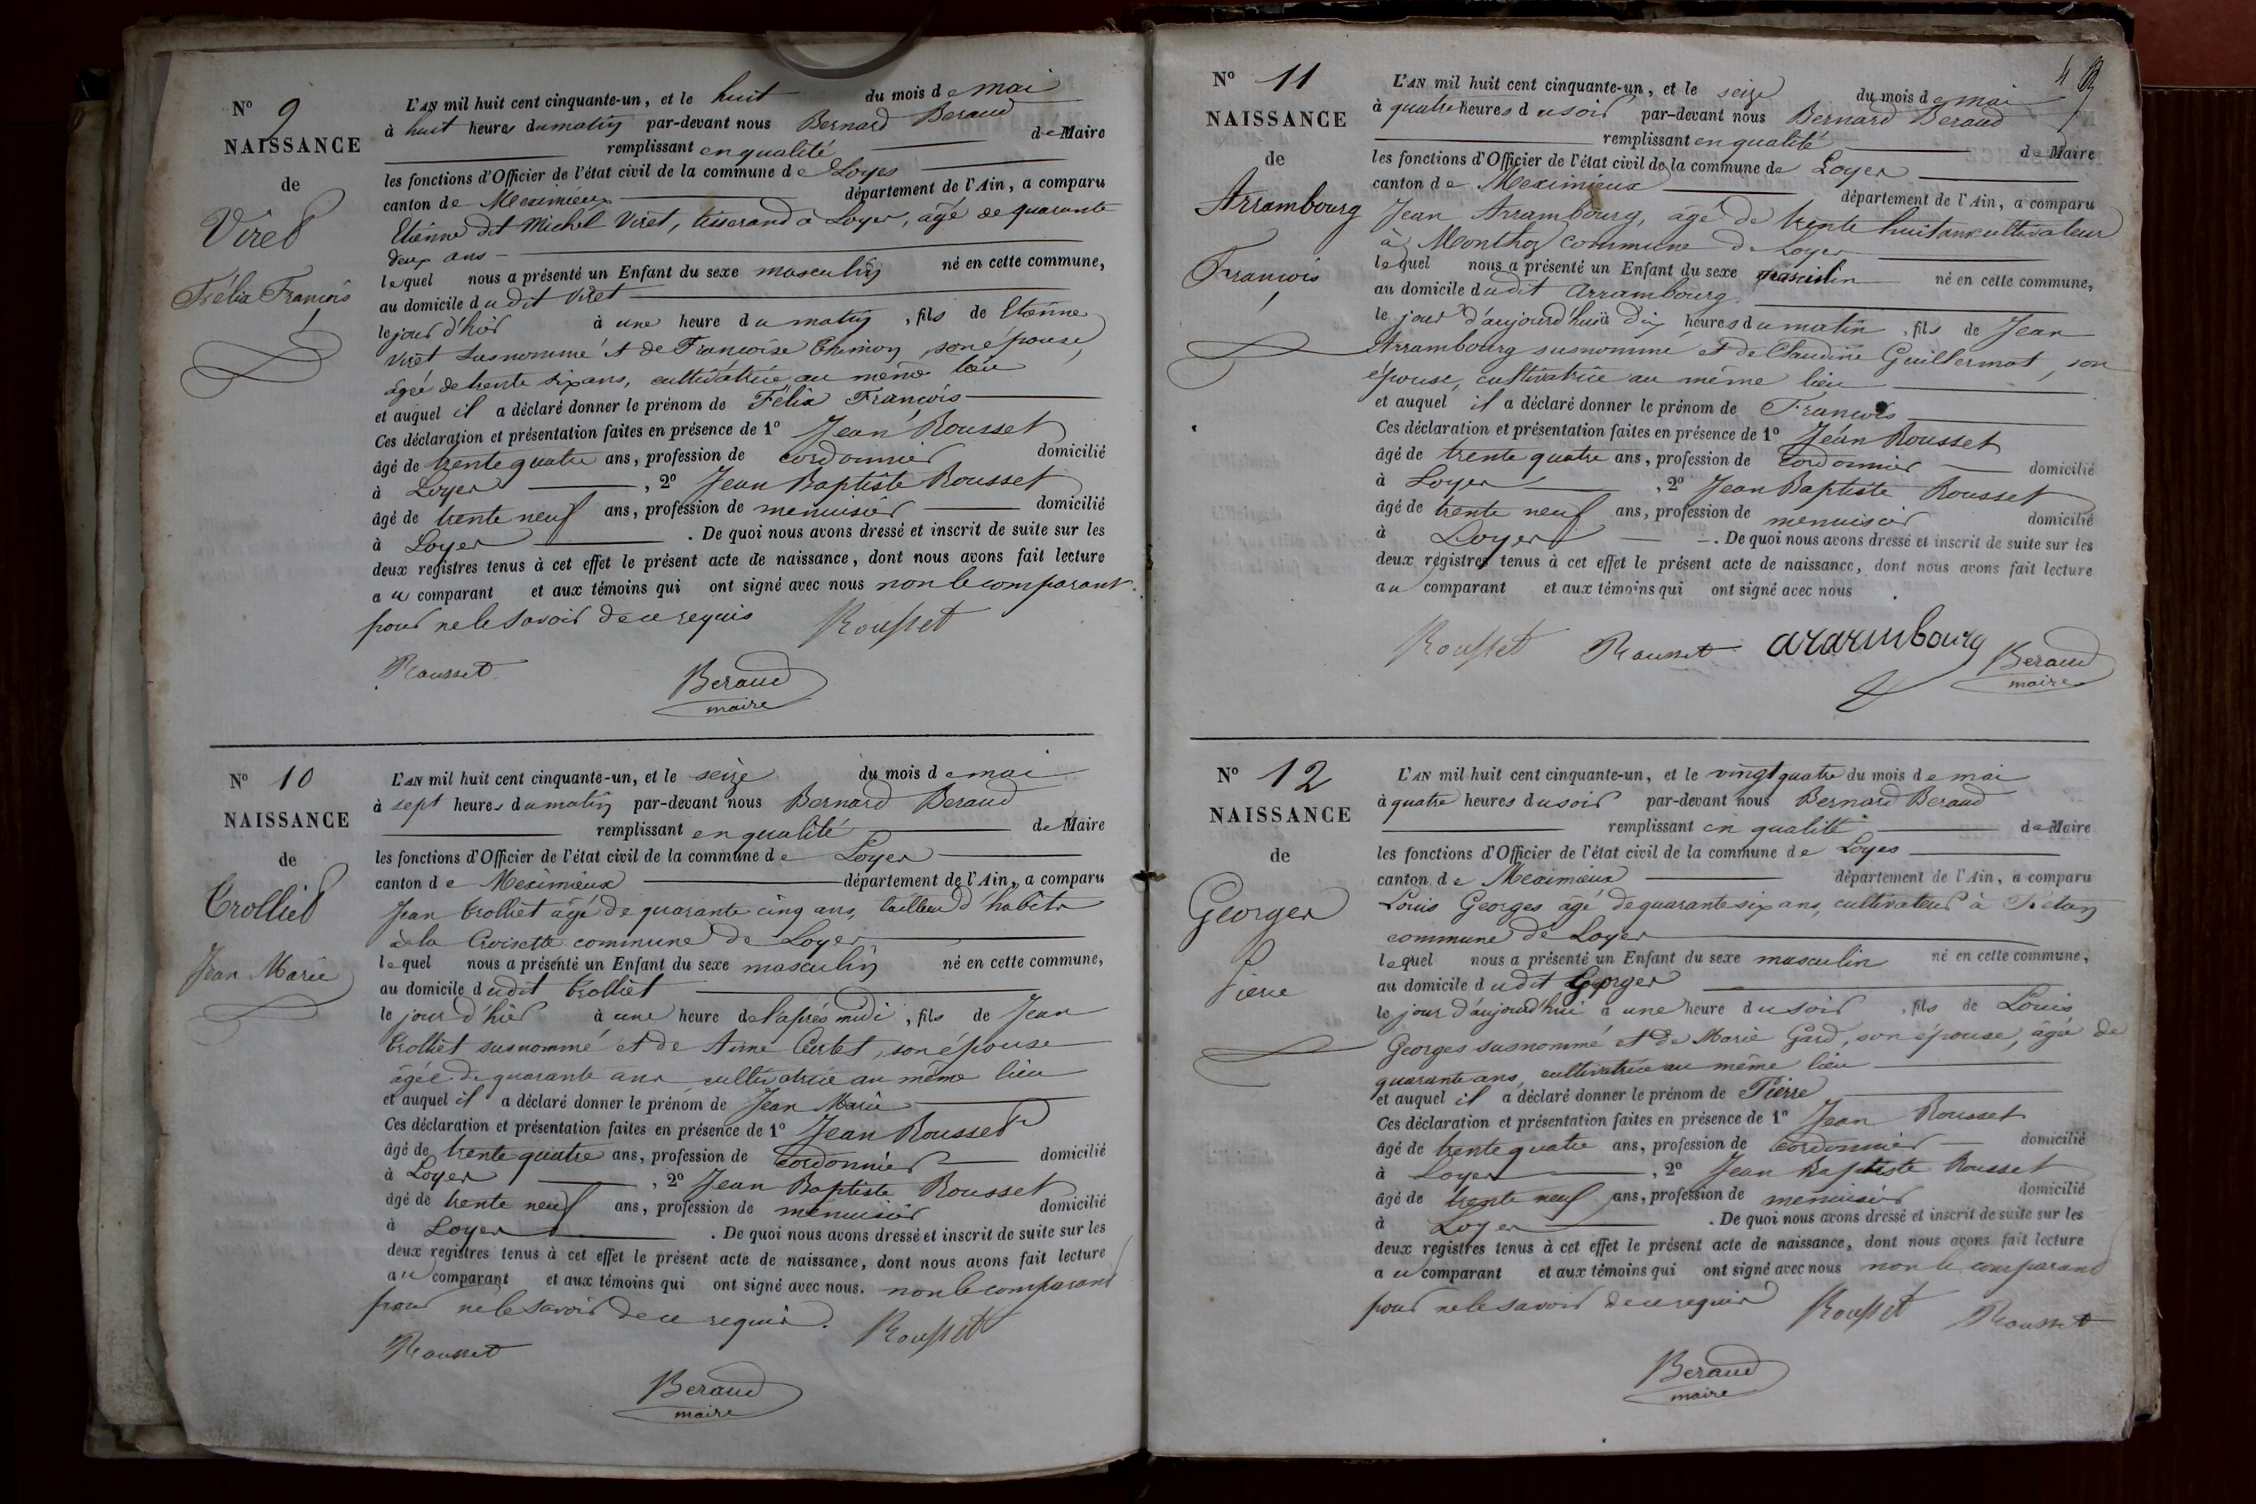 N° 9
NAISSANCE
de
Viret
Félix François
L'AN mil huit cent cinquante-un, et le huit du mois de mai
à huit heures du matin par-devant nous Bernard Beraud
remplissant en qualité de Maire
les fonctions d'Officier de l'état civil de la commune de Loyes
canton de Meximieux département de l'Ain, a comparu
Etienne dit Michel Viret, tisserand à Loyes, âgé de quarante
deux ans
lequel nous a présenté un Enfant du sexe masculin né en cette commune,
au domicile dudit Viret
le jour d'hier à une heure du matin, fils de Etienne
Viret susnommé et de Françoise Thimon, son épouse,
âgée de trente six ans, cultivatrice au même lieu
et auquel il a déclaré donner le prénom de Félix François
Ces déclaration et présentation faites en présence de 1° Jean Rousset
âgé de trente quatre ans, profession de cordonnier domicilié
à Loyes, 2° Jean Baptiste Rousset
âgé de trente neuf ans, profession de menuisier domicilié
à Loyes. De quoi nous avons dressé et inscrit de suite sur les
deux registres tenus à cet effet le présent acte de naissance, dont nous avons fait lecture
au comparant et aux témoins qui ont signé avec nous non le comparant
pour ne le savoir de ce requis Rousset
Rousset
Beraud
maire
N° 10
NAISSANCE
de
Trolliet
Jean Marie
L'AN mil huit cent cinquante-un, et le seize du mois de mai
à sept heures du matin par-devant nous Bernard Beraud
remplissant en qualité de Maire
les fonctions d'Officier de l'état civil de la commune de Loyes
canton de Meximieux département de l'Ain, a comparu
Jean Trolliet âgé de quarante cinq ans, tailleur d'habits
à la Croisette commune de Loyes,
lequel nous a présenté un Enfant du sexe masculin né en cette commune,
au domicile dudit Trolliet
le jour d'hier à une heure de l'après midi, fils de Jean
Trolliet susnommé et de Anne, son épouse
âgée de quarante ans cultivatrice au même lieu
et auquel il a déclaré donner le prénom de Jean Marie
Ces déclaration et présentation faites en présence de 1° Jean Rousset
âgé de trente quatre ans, profession de cordonnier domicilié
à Loyes, 2° Jean Baptiste Rousset
âgé de trente neuf ans, profession de menuisier domicilié
à Loyes. De quoi nous avons dressé et inscrit de suite sur les
deux registres tenus à cet effet le présent acte de naissance, dont nous avons fait lecture
au comparant et aux témoins qui ont signé avec nous. non le comparant
pour ne le savoir de ce requis. Rousset
Rousset
Beraud
maire
N° 11
NAISSANCE
de
Arrambourg
François
L'AN mil huit cent cinquante-un, et le seize du mois de mai
à quatre heures du soir par-devant nous Bernard Beraud
remplissant en qualité de Maire
les fonctions d'Officier de l'état civil de la commune de Loyes
canton de Meximieux département de l'Ain, a comparu
Jean Arrambourg, âgé de trente huit ans cultivateur
à Monthoz commune de Loyes
lequel nous a présenté un Enfant du sexe masculin né en cette commune,
au domicile dudit Arrambourg
le jour d'aujourd'hui à dix heures du matin, fils de Jean
Arrambourg susnommé et de Claudine Guillermot, son
épouse, cultivatrice au même lieu
et auquel il a déclaré donner le prénom de François
Ces déclaration et présentation faites en présence de 1° Jean Rousset
âgé de trente quatre ans, profession de cordonnier domicilié
à Loyes, 2° Jean Baptiste Rousset
âgé de trente neuf ans, profession de menuisier domicilié
à Loyes. De quoi nous avons dressé et inscrit de suite sur les
deux registres tenus à cet effet le présent acte de naissance, dont nous avons fait lecture
au comparant et aux témoins qui ont signé avec nous
Rousset Rousset ararmbourg Beraud
maire
N° 12
NAISSANCE
de
Georges
Pierre
L'AN mil huit cent cinquante-un, et le vingt quatre du mois de mai
à quatre heures du soir par-devant nous Bernard Beraud
remplissant en qualité de Maire
les fonctions d'Officier de l'état civil de la commune de Loyes
canton de Meximieux département de l'Ain, a comparu
Louis Georges âgé de quarante six ans, cultivateur à
commune de Loyes
lequel nous a présenté un Enfant du sexe masculin né en cette commune,
au domicile dudit Georges
le jour d'aujourd'hui à une heure du soir, fils de Louis
Georges susnommé et de Marie Gard, son épouse, âgée de
quarante ans, cultivatrice au même lieu
et auquel il a déclaré donner le prénom de Pierre
Ces déclaration et présentation faites en présence de 1° Jean Rousset
âgé de trente quatre ans, profession de cordonnier domicilié
à Loyes, 2° Jean Baptiste Rousset
âgé de trente neuf ans, profession de menuisier domicilié
à Loyes. De quoi nous avons dressé et inscrit de suite sur les
deux registres tenus à cet effet le présent acte de naissance, dont nous avons fait lecture
au comparant et aux témoins qui ont signé avec nous non le comparant
pour ne le savoir de ce requis Rousset Rousset
Beraud
maire